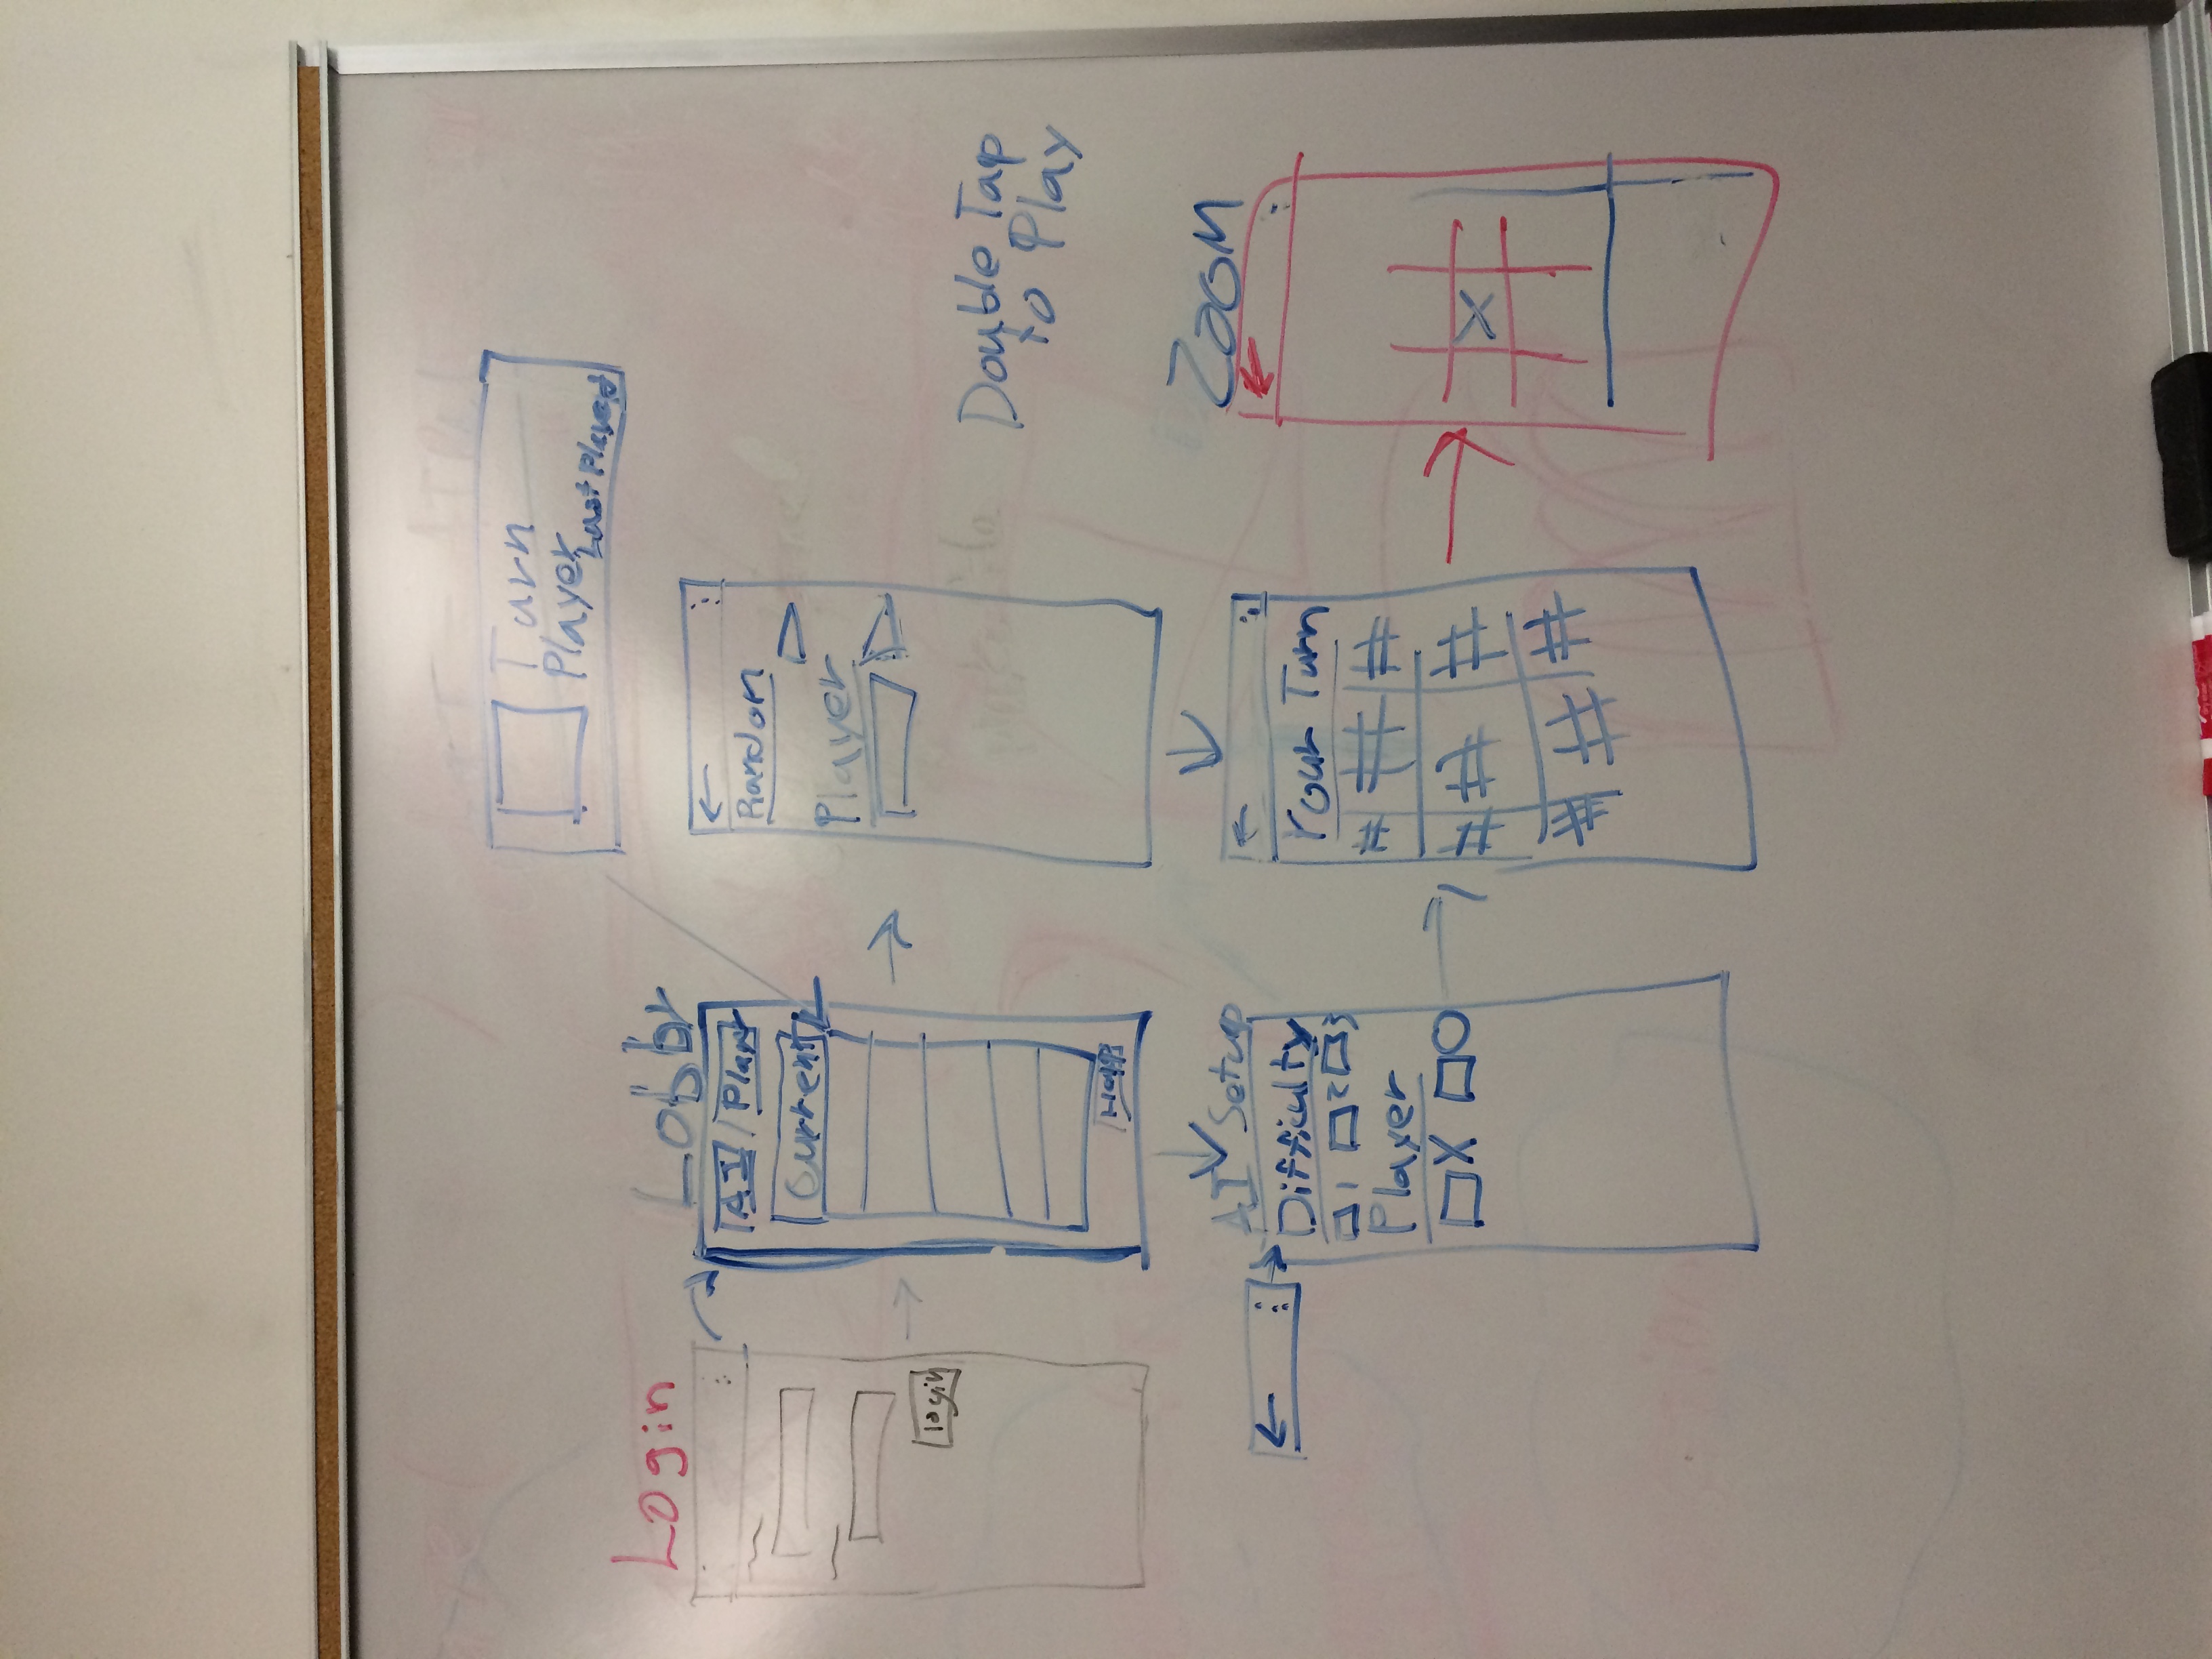 Turn
Player
Last Played
Login
login
Lobby
AI / Player
Current
Help
Random
Player
Double Tap
to Play
AI Setup
Difficulty
1 2 3
Player
X O
Your Turn
Zoom
X